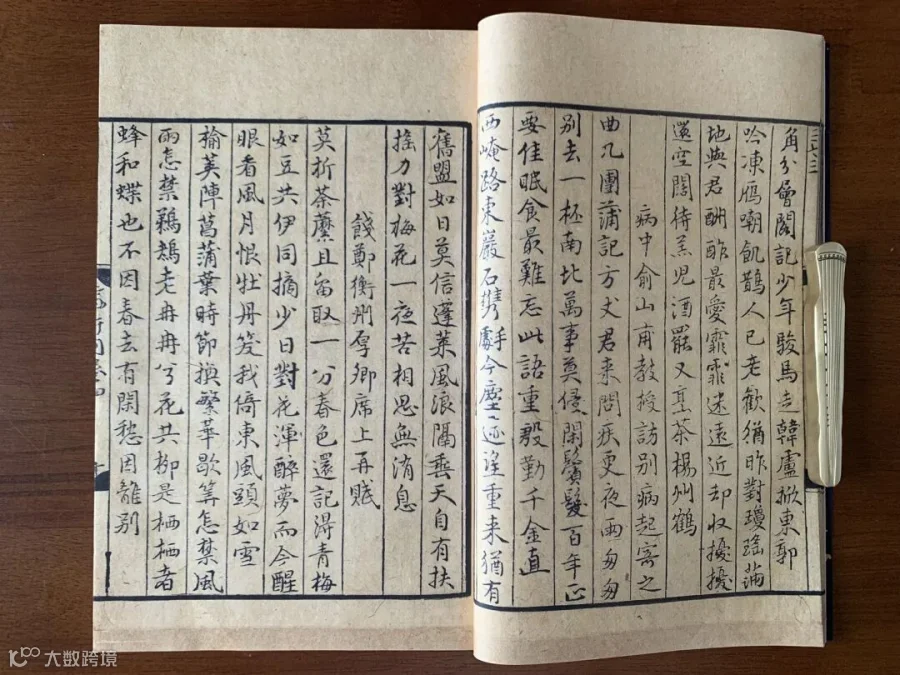 角分曾闘記少年駿馬走韓盧掀東郭
吟凍鴈嘲飢鵲人已老歡猶昨對瓊瑤滿
地與君酬酢最愛霏霏迷遠近却収擾擾
還空闊待羔児酒罷又烹茶楊州鶴
病中俞山甫教授訪别病起寄之
曲几團蒲記方丈君来問疾更夜雨匆匆
别去一杯南北萬事莫侵閑鬢髮百年正
要佳眠食最難忘此語重殷勤千金直
西崦路東巖石携手處今塵迹望重来猶有
舊盟如日莫信蓬萊風浪隔垂天自有扶
搖力對梅花一夜苦相思無消息
餞鄭衡州厚卿席上再賦
莫折荼蘼且留取一分春色還記得青梅
如豆共伊同摘少日對花渾醉夢而今醒
眼看風月恨牡丹笑我倚東風頭如雪
榆莢陣菖蒲葉時節換繁華歇筭怎禁風
雨怎禁鵜鴂老冉冉兮花共柳是栖栖者
蜂和蝶也不因春去有閑愁因離别
大数跨境